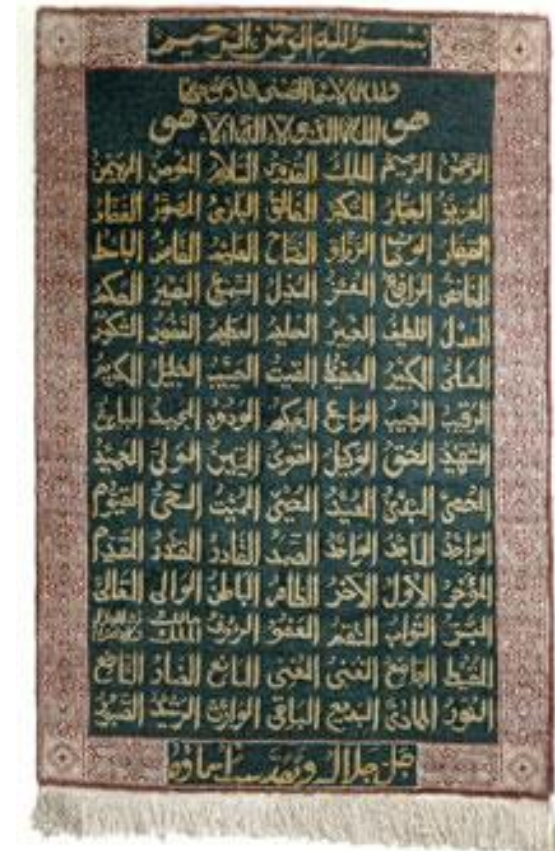 بسم الله الرحمن الرحيم
ولله الاسماء الحسنى فادعوه بها
هو الله الذى لا اله الا هو
الرحمن الرحيم الملك القدوس السلام المؤمن المهيمن
العزيز الجبار المتكبر الخالق البارئ المصور الغفار
القهار الوهاب الرزاق الفتاح العليم القابض الباسط
الخافض الرافع المعز المذل السميع البصير الحكم
العدل اللطيف الخبير الحليم العظيم الغفور الشكور
العلى الكبير الحفيظ المقيت الحسيب الجليل الكريم
الرقيب المجيب الواسع الحكيم الودود المجيد الباعث
الشهيد الحق الوكيل القوى المتين الولى الحميد
المحصى المبدئ المعيد المحيى المميت الحى القيوم
الواجد الماجد الواحد الصمد القادر المقتدر المقدم
المؤخر الاول الآخر الظاهر الباطن الوالى المتعالى
البر التواب المنتقم العفو الرؤوف مالك الملك
المقسط الجامع الغنى المغنى المانع الضار النافع
النور الهادى البديع الباقى الوارث الرشيد الصبور
جل جلاله وتقدست اسماؤه